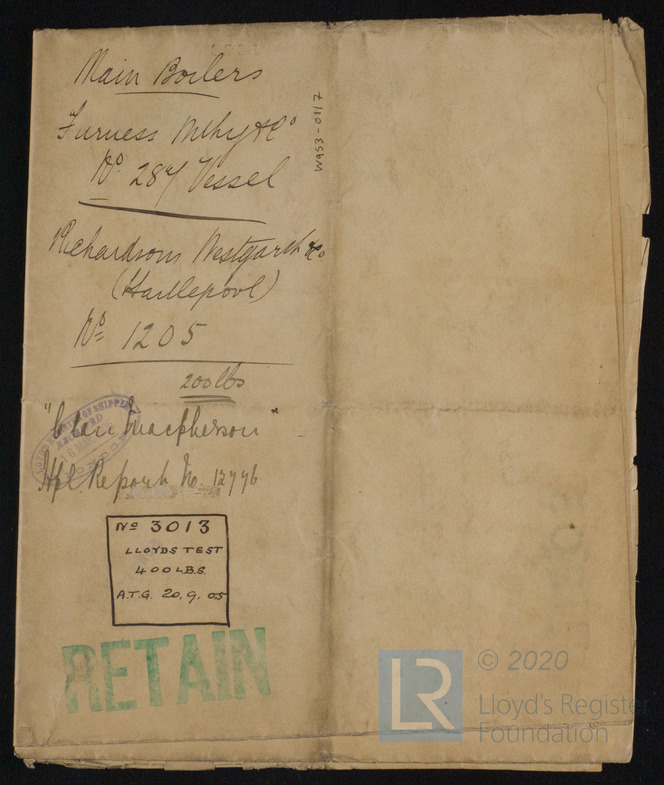 Main Boilers
Furness Wthy & Co
No 287 Vessel
Richardsons Westgarth & Co
(Hartlepool)
No 1205
200 lbs
"Clan Macpherson"
Hpl Report No. 12776
No 3013
LLOYDS TEST
400 LBS.
A.T.G. 20.9.05
RETAIN
W653-0117
LR
© 2020
Lloyd's Register
Foundation